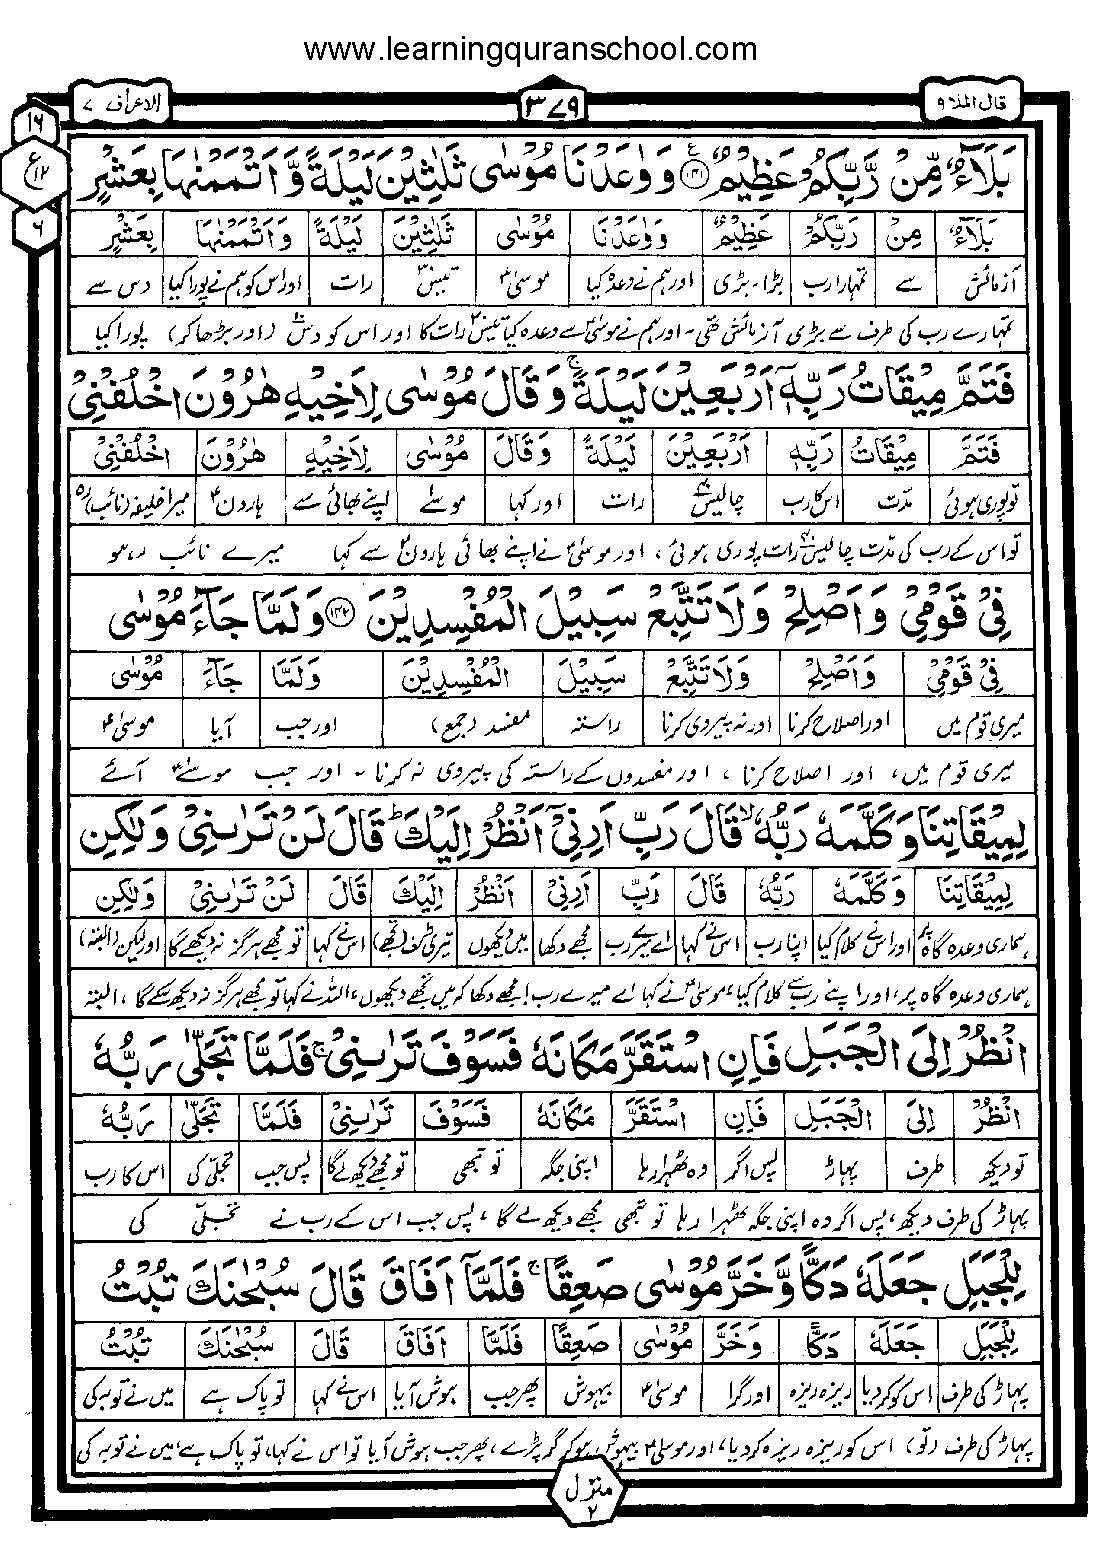 www.learningquranschool.com
قال الملا ٩
٣٧٩
الاعراف ٧
١٦
ع ١٧
٦
بَلَآءٌ مِّنْ رَّبِّكُمْ عَظِيْمٌ ﴿۱۴۱﴾ وَوٰعَدْنَا مُوْسٰى ثَلٰثِيْنَ لَيْلَةً وَّاَتْمَمْنٰهَا بِعَشْرٍ
بَلَآءٌ مِنْ رَبِّكُمْ عَظِيْمٌ وَوٰعَدْنَا مُوْسٰى ثَلٰثِيْنَ لَيْلَةً وَاَتْمَمْنٰهَا بِعَشْرٍ
آزمائش سے تمہارا رب بڑا۔بڑی اور ہم نے وعدہ کیا موسیٰؑ تیس۳۰ رات اور اس کو ہم نے پورا کیا دس سے
تمہارے رب کی طرف سے بڑی آزمائش تھی۔ اور ہم نے موسیٰؑ سے وعدہ کیا تیس۳۰ رات کا اور اس کو دس۱۰ (اور بڑھا کر) پورا کیا
فَتَمَّ مِيْقَاتُ رَبِّهٖٓ اَرْبَعِيْنَ لَيْلَةً ۚ وَقَالَ مُوْسٰى لِاَخِيْهِ هٰرُوْنَ اخْلُفْنِيْ
فَتَمَّ مِيْقَاتُ رَبِّهٖ اَرْبَعِيْنَ لَيْلَةً وَقَالَ مُوْسٰى لِاَخِيْهِ هٰرُوْنَ اخْلُفْنِيْ
تو پوری ہوئی مدّت اس کا رب چالیس۴۰ رات اور کہا موسےٰ اپنے بھائی سے ہارونؑ میرا خلیفہ (نائب) رہ
تو اس کے رب کی مدّت چالیس۴۰ رات پوری ہوئی، اور موسیٰؑ نے اپنے بھائی ہارونؑ سے کہا میرے نائب رہو
فِيْ قَوْمِيْ وَاَصْلِحْ وَلَا تَتَّبِعْ سَبِيْلَ الْمُفْسِدِيْنَ ﴿۱۴۲﴾ وَلَمَّا جَآءَ مُوْسٰى
فِيْ قَوْمِيْ وَاَصْلِحْ وَلَا تَتَّبِعْ سَبِيْلَ الْمُفْسِدِيْنَ وَلَمَّا جَآءَ مُوْسٰى
میری قوم میں اور اصلاح کرنا اور نہ پیروی کرنا راستہ مفسد (جمع) اور جب آیا موسیٰؑ
میری قوم میں، اور اصلاح کرنا، اور مفسدوں کے راستہ کی پیروی نہ کرنا۔ اور جب موسےٰؑ آئے
لِمِيْقَاتِنَا وَكَلَّمَهٗ رَبُّهٗ ۙ قَالَ رَبِّ اَرِنِيْٓ اَنْظُرْ اِلَيْكَ ؕ قَالَ لَنْ تَرٰىنِيْ وَلٰكِنِ
لِمِيْقَاتِنَا وَكَلَّمَهٗ رَبُّهٗ قَالَ رَبِّ اَرِنِيْ اَنْظُرْ اِلَيْكَ قَالَ لَنْ تَرٰىنِيْ وَلٰكِنِ
ہماری وعدہ گاہ پر اور اس نے کلام کیا اپنا رب اس نے کہا اے میرے رب مجھے دکھا میں دیکھوں تیری طرف (تجھے) اس نے کہا تو مجھے ہرگز نہ دیکھے گا اور لیکن (البتہ)
ہماری وعدہ گاہ پر، اور اپنے رب سے کلام کیا، موسیٰؑ نے کہا اے میرے رب! مجھے دکھا کہ میں تجھے دیکھوں، اللہ نے کہا تو مجھے ہرگز نہ دیکھ سکے گا، البتہ
انْظُرْ اِلَى الْجَبَلِ فَاِنِ اسْتَقَرَّ مَكَانَهٗ فَسَوْفَ تَرٰىنِيْ ۚ فَلَمَّا تَجَلّٰى رَبُّهٗ
انْظُرْ اِلَى الْجَبَلِ فَاِنِ اسْتَقَرَّ مَكَانَهٗ فَسَوْفَ تَرٰىنِيْ فَلَمَّا تَجَلّٰى رَبُّهٗ
تو دیکھ طرف پہاڑ پس اگر وہ ٹھہرا رہا اپنی جگہ تو تبھی تو مجھے دیکھ لے گا پس جب تجلّی کی اس کا رب
پہاڑ کی طرف دیکھ، پس اگر وہ اپنی جگہ ٹھہرا رہا تو تبھی مجھے دیکھ لے گا، پس جب اس کے رب نے تجلّی کی
لِلْجَبَلِ جَعَلَهٗ دَكًّا وَّخَرَّ مُوْسٰى صَعِقًا ۚ فَلَمَّآ اَفَاقَ قَالَ سُبْحٰنَكَ تُبْتُ
لِلْجَبَلِ جَعَلَهٗ دَكًّا وَخَرَّ مُوْسٰى صَعِقًا فَلَمَّا اَفَاقَ قَالَ سُبْحٰنَكَ تُبْتُ
پہاڑ کی طرف اس کو کر دیا ریزہ ریزہ اور گرا موسیٰؑ بیہوش پھر جب ہوش آیا اس نے کہا تو پاک ہے میں نے توبہ کی
پہاڑ کی طرف (تو) اس کو ریزہ ریزہ کر دیا، اور موسیٰؑ بیہوش ہو کر گر پڑے، پھر جب ہوش آیا تو اس نے کہا، تو پاک ہے، میں نے توبہ کی
منزل ٢